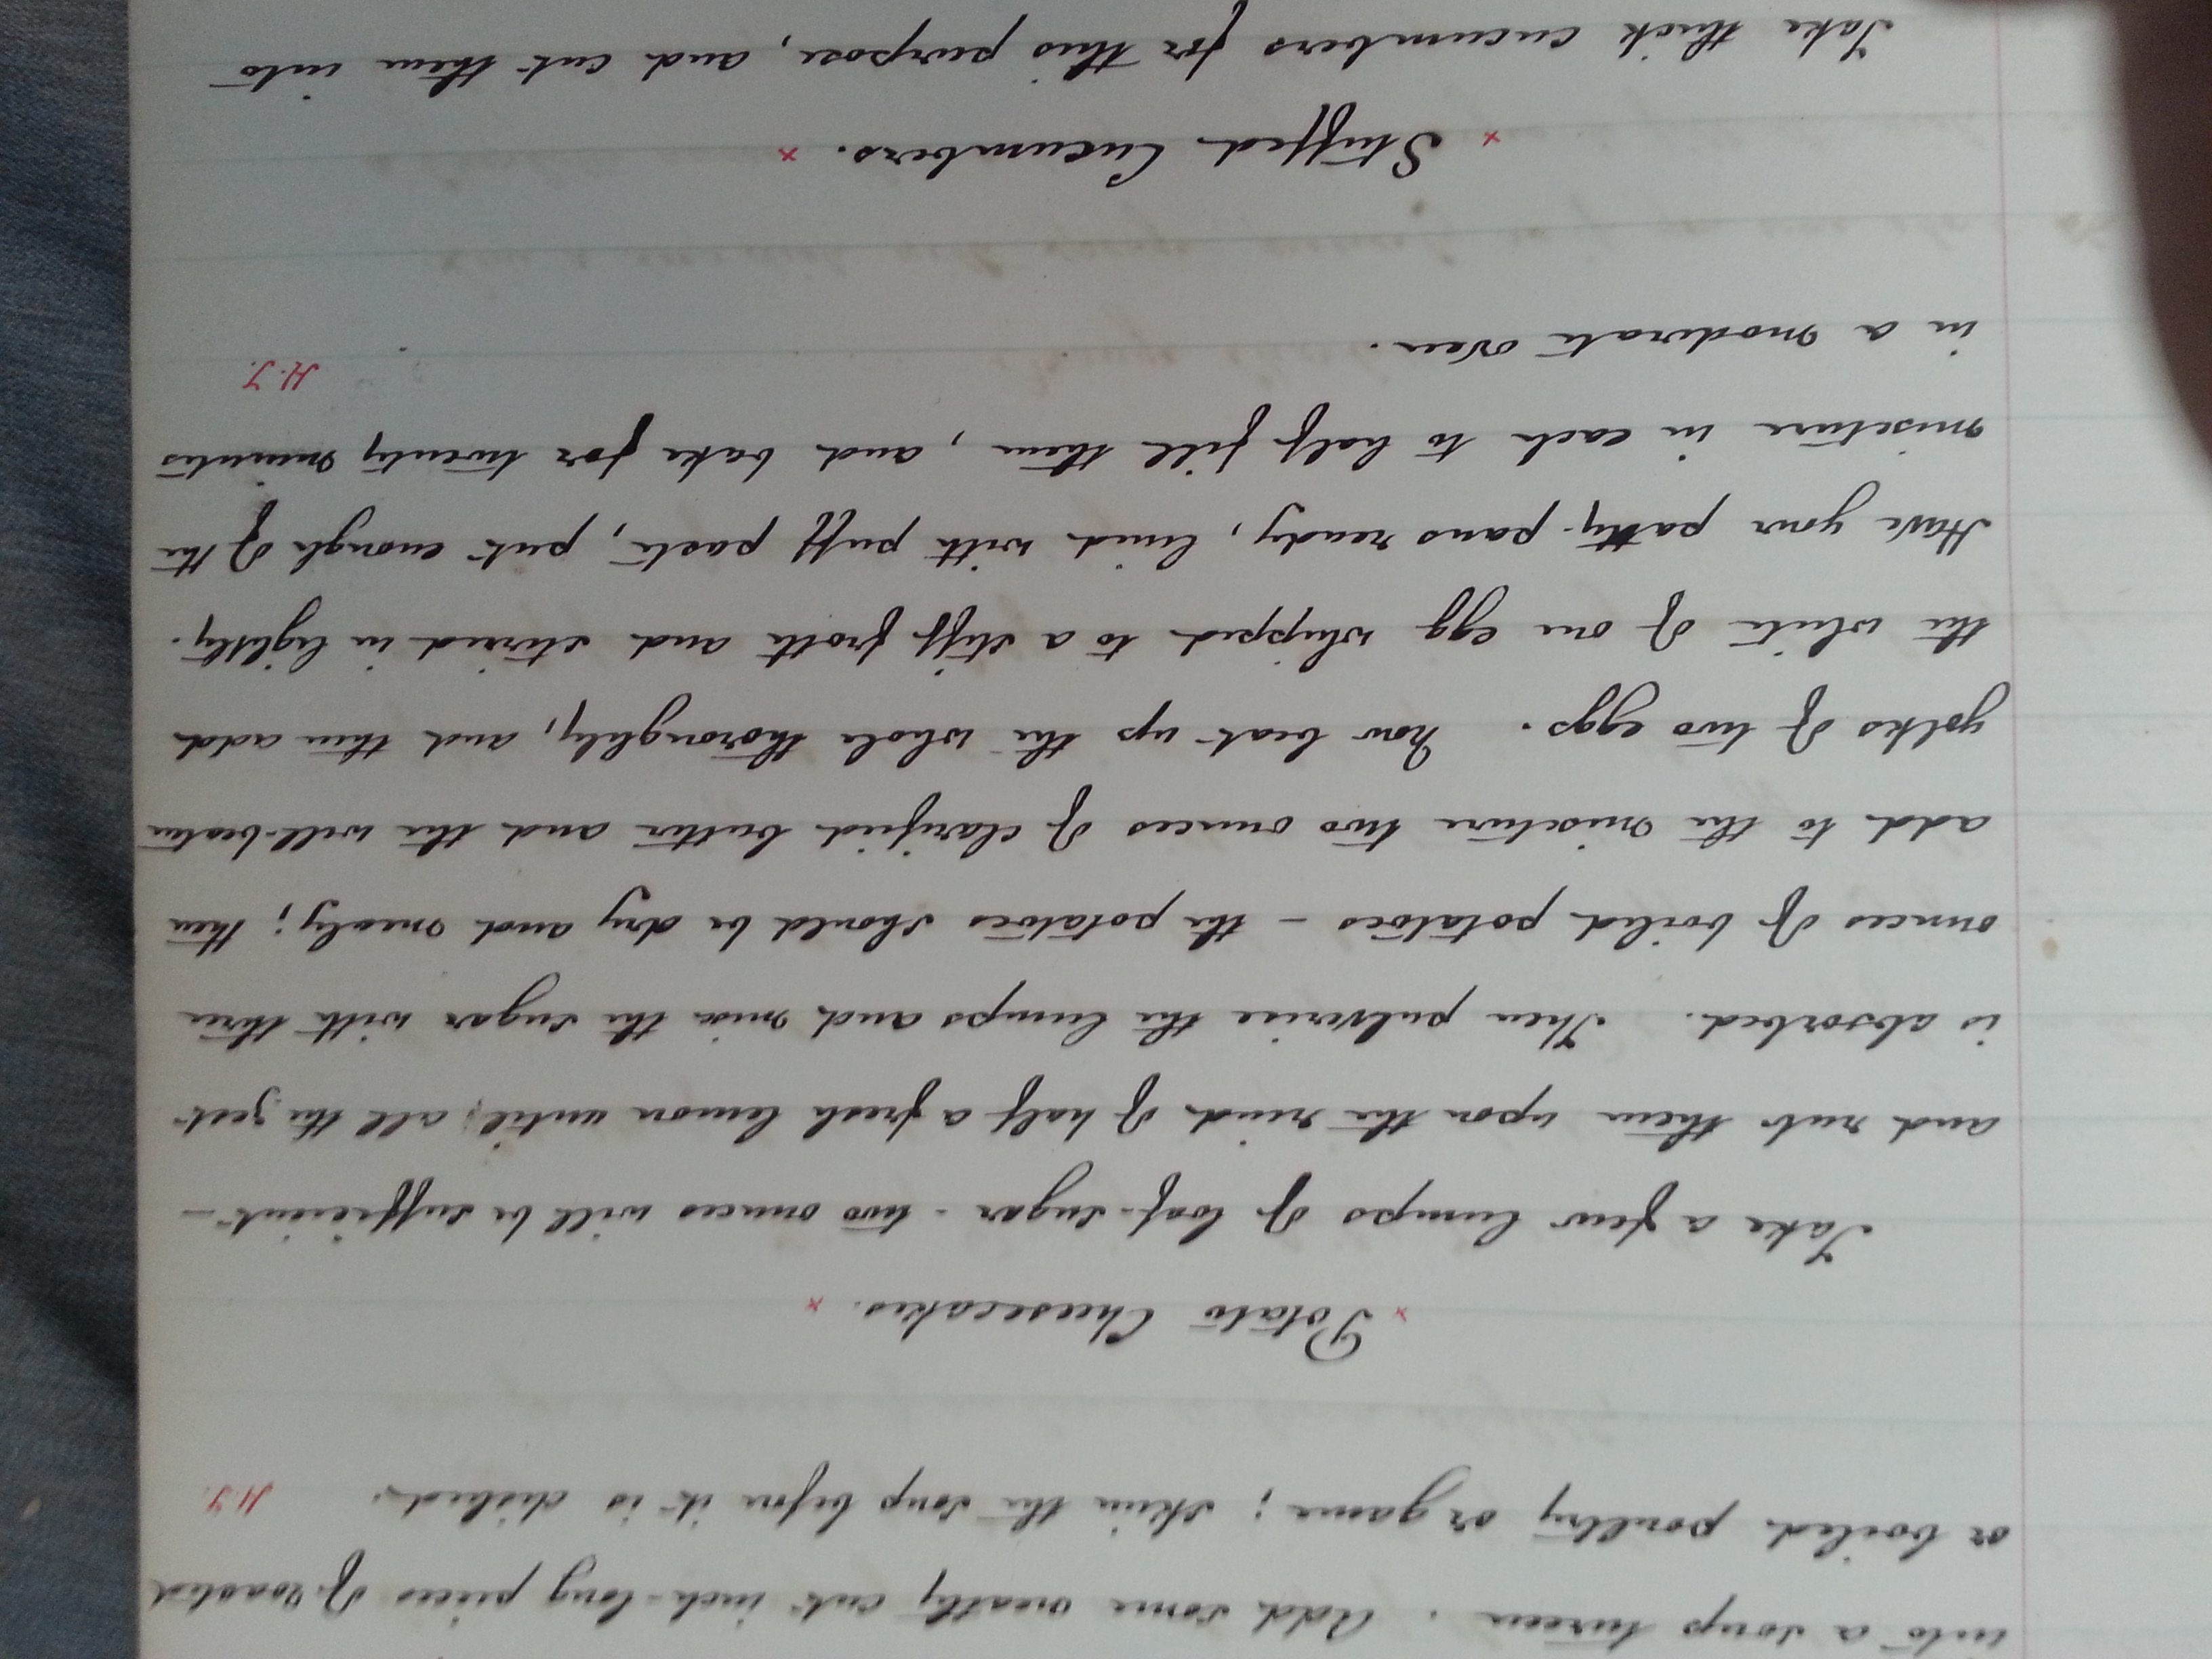 into a soup tureen. Add some neatly cut inch-long pieces of roasted
or boiled poultry or game; skim the soup before it is dished. H.J.
× Potato Cheesecakes. ×
Take a few lumps of loaf-sugar - two ounces will be sufficient -
and rub them upon the rind of half a fresh lemon until all the zest
is absorbed. Then pulverise the lumps and mix the sugar with three
ounces of boiled potatoes - the potatoes should be dry and mealy; then
add to the mixture two ounces of clarified butter and the well-beaten
yolks of two eggs. Now beat up the whole thoroughly, and then add
the white of one egg whipped to a stiff froth and stirred in lightly.
Have your patty-pans ready, lined with puff paste, put enough of the
mixture in each to half fill them, and bake for twenty minutes
in a moderate oven. H.J.
× Stuffed Cucumbers. ×
Take thick cucumbers for this purpose, and cut them into